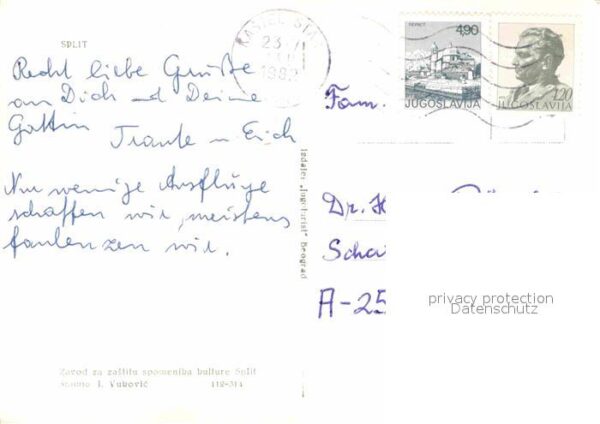 SPLIT
Recht liebe Grüße
an Dich und Deine
Gattin Traute u Erich
Nur wenige Ausflüge
schaffen wir, meistens
faulenzen wir.
Zavod za zaštitu spomenika kulture Split
Snimio I. Vuković 112-314
Izdaje: „Jugoturist" Beograd
KAŠTEL
23
4,90
JUGOSLAVIJA
1,20
JUGOSLAVIJA
Fam.
Dr. H
A-25
privacy protection
Datenschutz